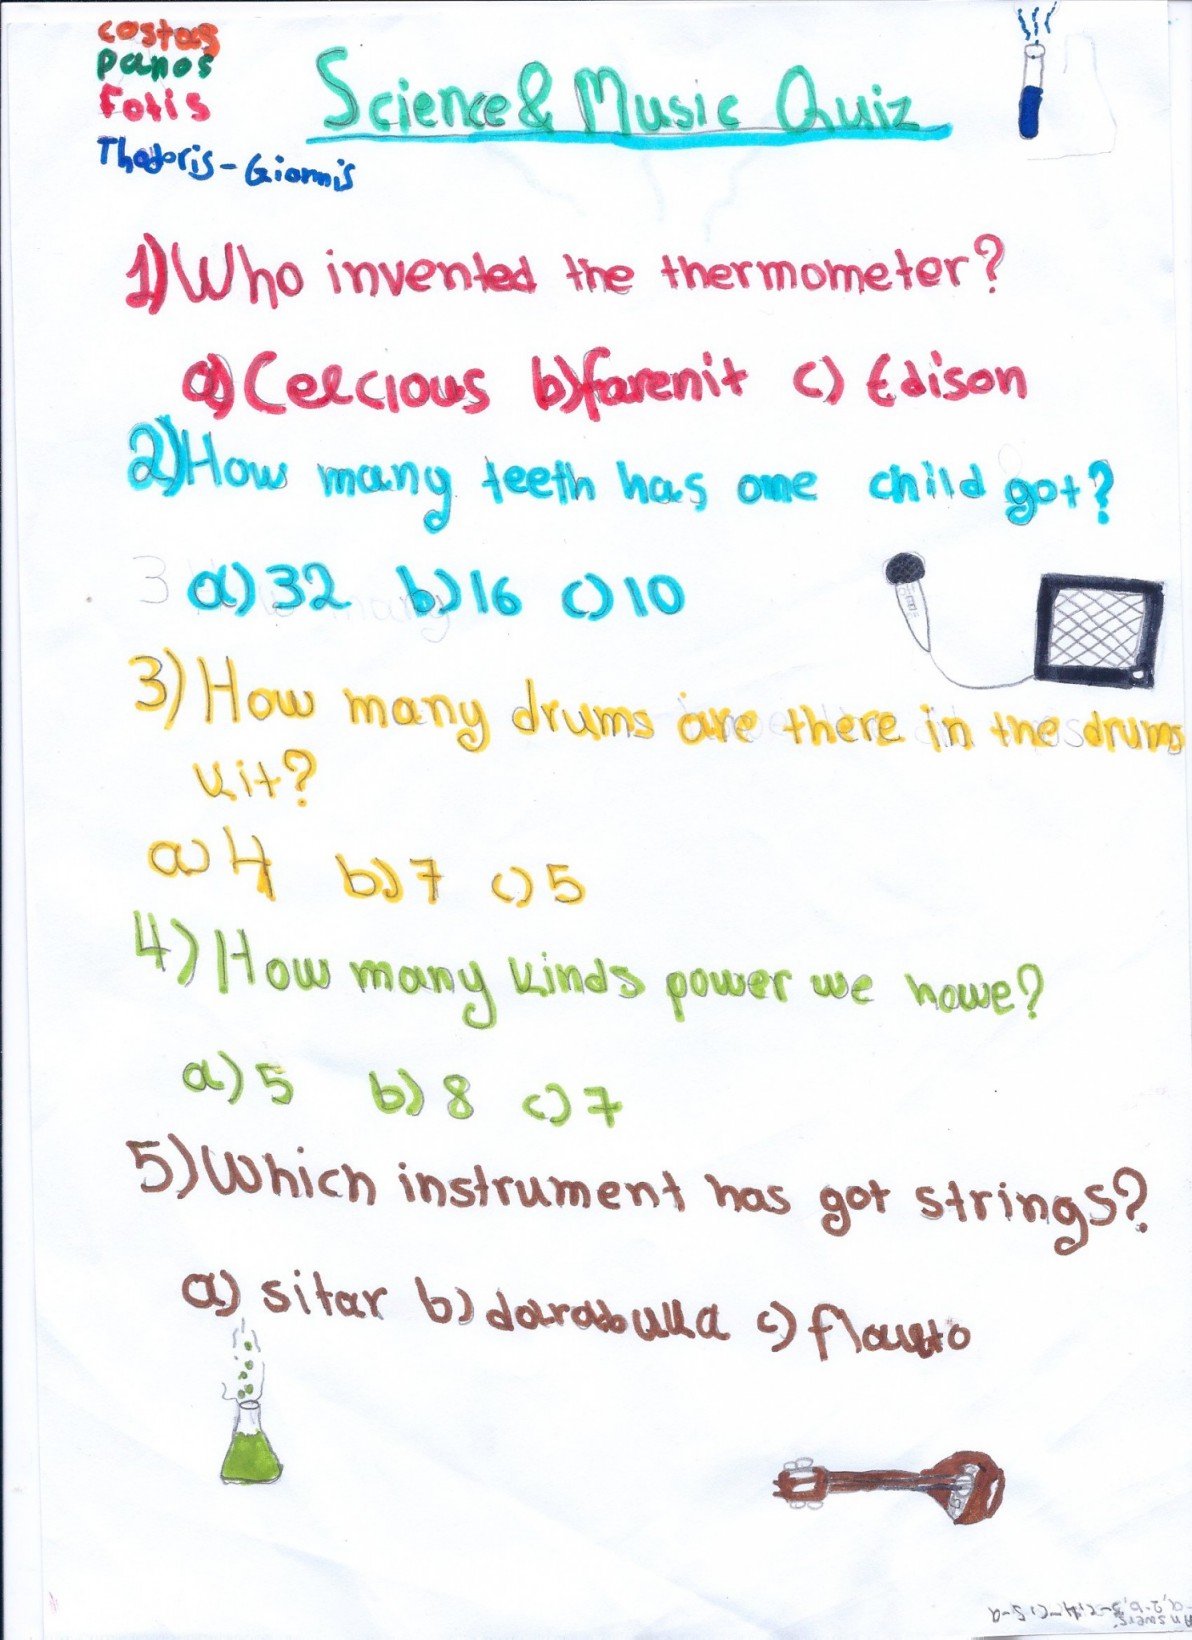 costas
panos
Fotis
Thodoris-Giannis
Science & Music Quiz
1) Who invented the thermometer?
a) Celcious b) farenit c) Edison
2) How many teeth has one child got?
3 a) 32 b) 16 c) 10
3) How many drums are there in the drums
kit?
a) 4 b) 7 c) 5
4) How many kinds power we howe?
a) 5 b) 8 c) 7
5) Which instrument has got strings?
a) sitar b) darabukka c) flauto
Answers: